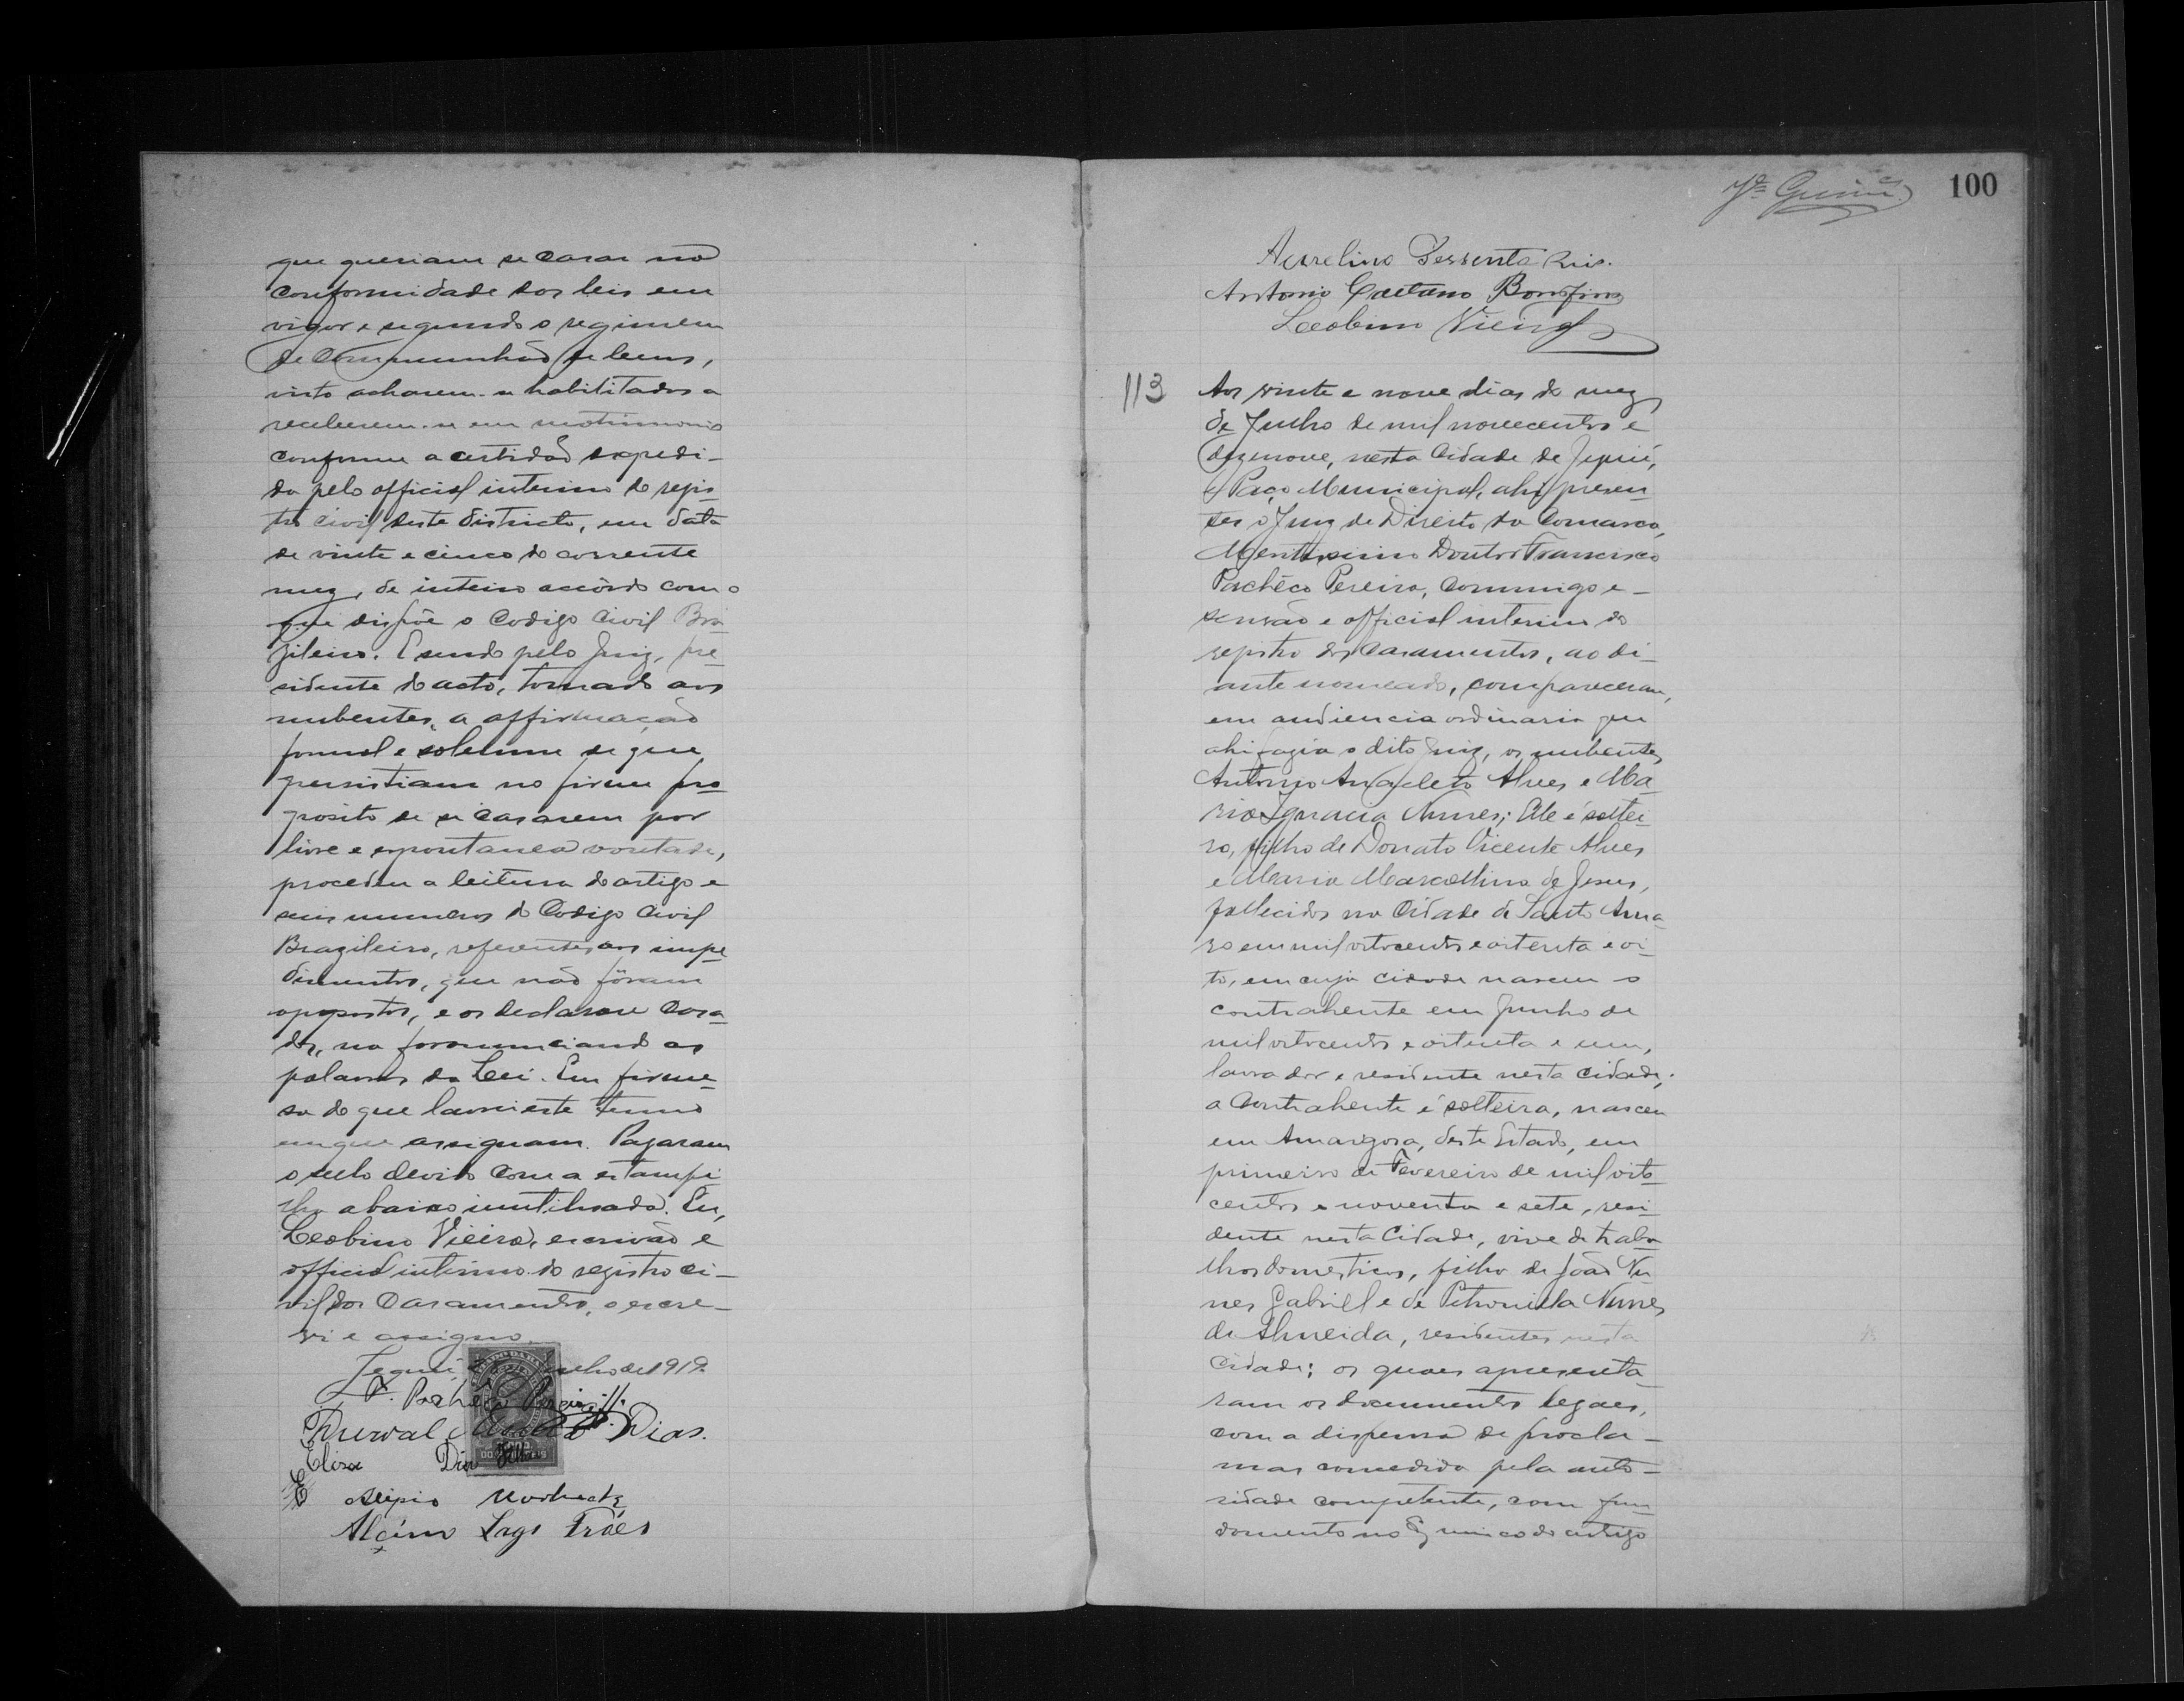 que queriam se casar na
conformidade das leis em
vigor e segundo o regimem
de Communhão de bens,
visto acharem-se habilitados a
receberem-se em matrimonio
conforme a certidão expedi-
da pelo official interino do regis-
tro civil deste districto, em data
de vinte e cinco do corrente
mez, de inteiro accôrdo com o
que dispõe o Codigo Civil Bra-
zileiro. E sendo pelo Juiz, pre-
sidente do acto, tomado aos
nubentes, a affirmação
formal e solemne de que
persistiam no firme pro-
posito de se casarem por
livre e espontanea vontade,
procedeu a leitura do artigo e
seus numeros do Codigo Civil
Brazileiro, referentes aos impe-
dimentos, que não fôram
oppostos, e os declarou casa-
dos, na pronunciando as
palavras da Lei. Em firme-
sa do que lavrei este termo
em que assignam. Pagaram
o sello devido com a estampi-
lha abaixo inutilisada. Eu,
Leobino Vieira, escrivão e
official interino do registro ci-
vil dos Casamentos, o escre-
vi e assigno.
Jequié, Julho de 1919.
F. Pacheco Pereira
Durval Dias.
Elisa Dias
Alipio
Alcino Lago Fróes
100
Aurelino Sessenta Reis.
Antonio Caetano Bomfim
Leobino Vieira
113
Aos vinte e nove dias do mez
de Julho de mil novecentos e
dezenove, nesta Cidade de Jequié,
e Paço Municipal, ahi presen-
tes o Juiz de Direito da Comarca,
Meritissimo Doutor Francisco
Pachêco Pereira, commigo e-
scrivão e official interino do
registro dos Casamentos, ao di-
ante nomeado, compareceram,
em audiencia ordinaria que
ahi fazia o dito Juiz, os nubentes
Antonio Anacleto Alves e Ma-
ria Ignacia Nunes; Elle é soltei-
ro, filho de Donato Vicente Alves
e Maria Marcellina de Jesus,
fallecidos na Cidade de Santo Ama-
ro em mil oitocentos e oitenta e oi-
to, em cuja cidade nasceu o
contrahente em Junho de
mil oitocentos e oitenta e um,
lavrador e residente nesta Cidade;
a Contrahente é solteira, nasceu
em Amargosa, deste Estado, em
primeiro de Fevereiro de mil oito-
centos e noventa e sete, resi-
dente nesta Cidade, vive de traba-
lhos domesticos, filha de João Nu-
nes Gabriel e de Petronilla Nunes
de Almeida, residentes nesta
Cidade; os quaes apresenta-
ram os documentos legaes,
com a dispensa de procla-
mas concedida pela auto-
ridade competente, com fun-
damento no § unico do artigo